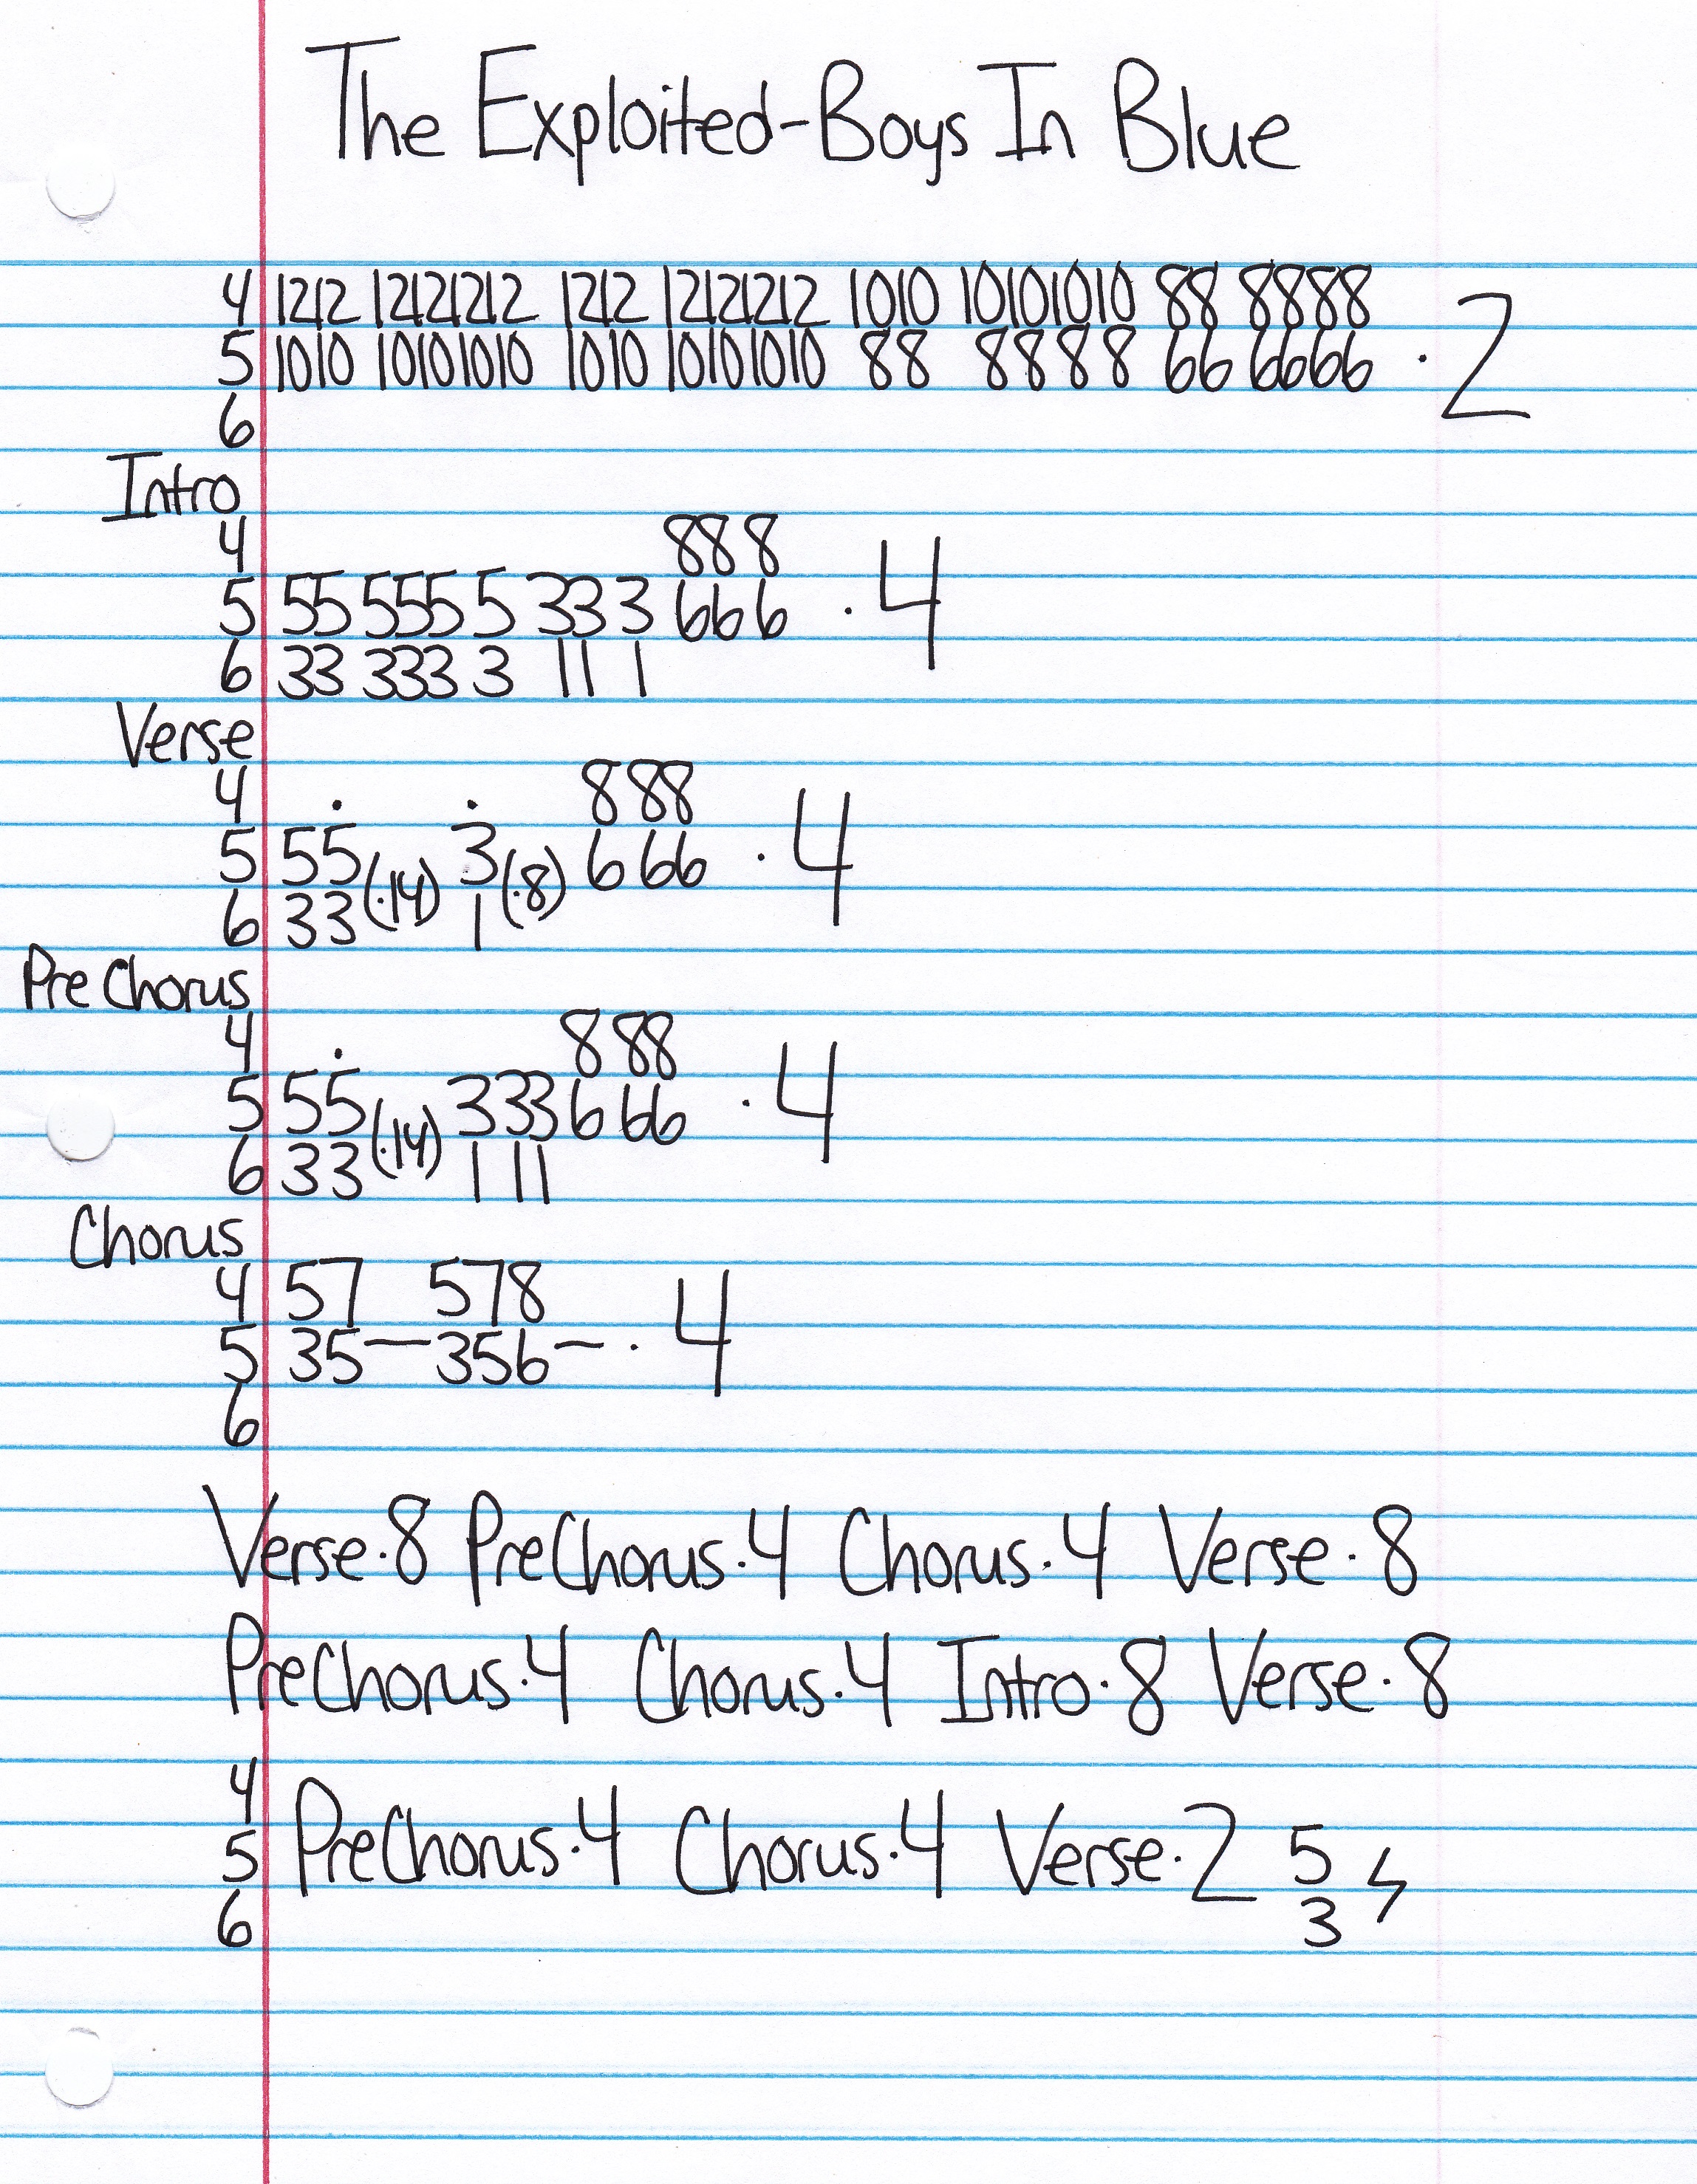 The Exploited-Boys In Blue
4 1212 12121212 1212 12121212 1010 10101010 88 8888
5 1010 10101010 1010 10101010 88 8888 66 6666 · 2
6
Intro
4 888
5 55 555 5 333 666 · 4
6 33 333 3 11 1
Verse
4 · · 8 88
5 55 (·14) 3 (·8) 6 66 · 4
6 33 1
Pre Chorus
4 · 8 88
5 55 (·14) 333 6 66 · 4
6 33 1 11
Chorus
4 57 578
5 35—356— · 4
6
Verse·8 PreChorus·4 Chorus·4 Verse·8
PreChorus·4 Chorus·4 Intro·8 Verse·8
4
5 PreChorus·4 Chorus·4 Verse·2 5
6 3